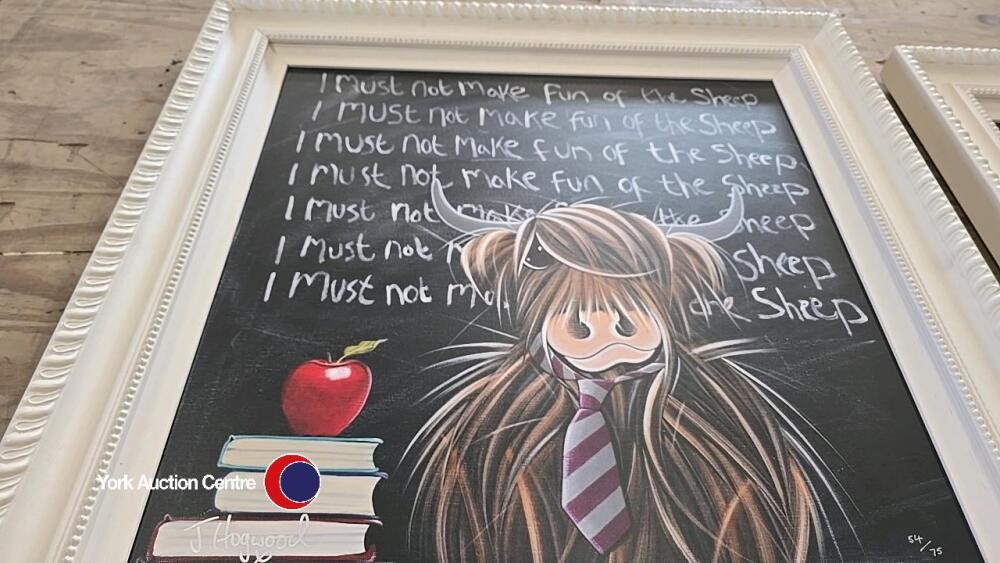 I Must not Make fun of the Sheep
I Must not Make fun of the Sheep
I Must not Make fun of the Sheep
I Must not make fun of the Sheep
I Must not make the Sheep
I Must not Sheep
I Must not the Sheep
York Auction Centre
J Hogwood
54/75